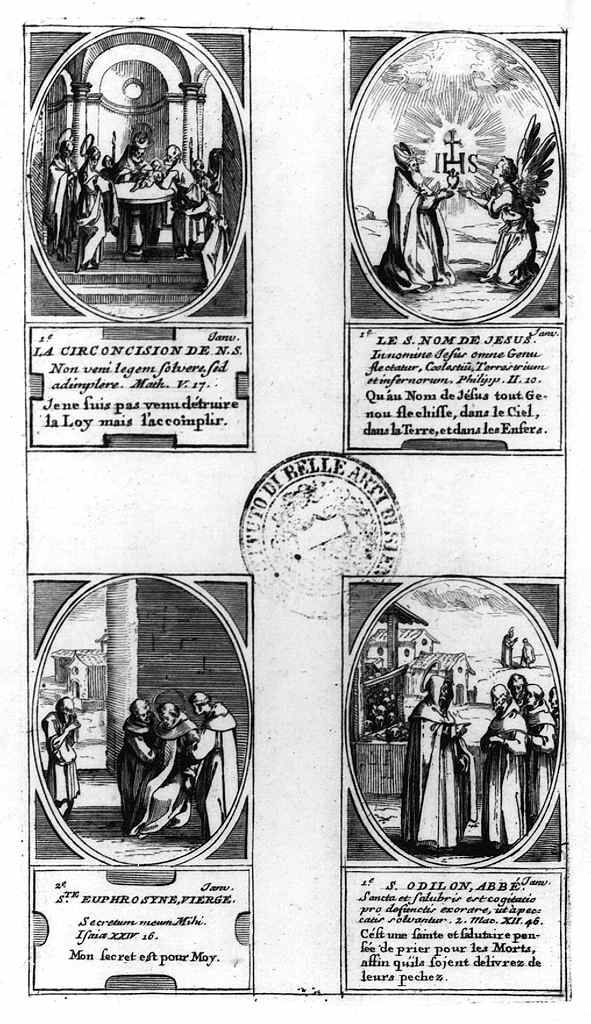 1e Janv.
LA CIRCONCISION DE N.S.
Non veni legem solvere, sed
adimplere. Math. V. 17.
Je ne suis pas venu détruire
la Loy mais l'accomplir.
IHS
1e Janv.
LE S. NOM DE JESUS.
In nomine Jesus omne Genu
flectatur, Cœlestiū, Terrestrium
et infernorum. Philipp. II. 10.
Qu'au Nom de Jésus tout Ge-
nou flechisse, dans le Ciel,
dans la Terre, et dans les Enfers.
TUTO DI BELLE ARTI DI SIE
2e Janv.
S.TE EUPHROSYNE, VIERGE.
Secretum meum Mihi.
Isaiæ XXIV 16.
Mon secret est pour Moy.
1e Janv.
S. ODILON, ABBÉ.
Sancta et salubris est cogitatio
pro defunctis exorare, ut à pec-
catis solvantur. 2. Mac. XII. 46.
C'est une sainte et salutaire pen-
sée de prier pour les Morts,
affin qu'ils sojent delivrez de
leurs pechez.